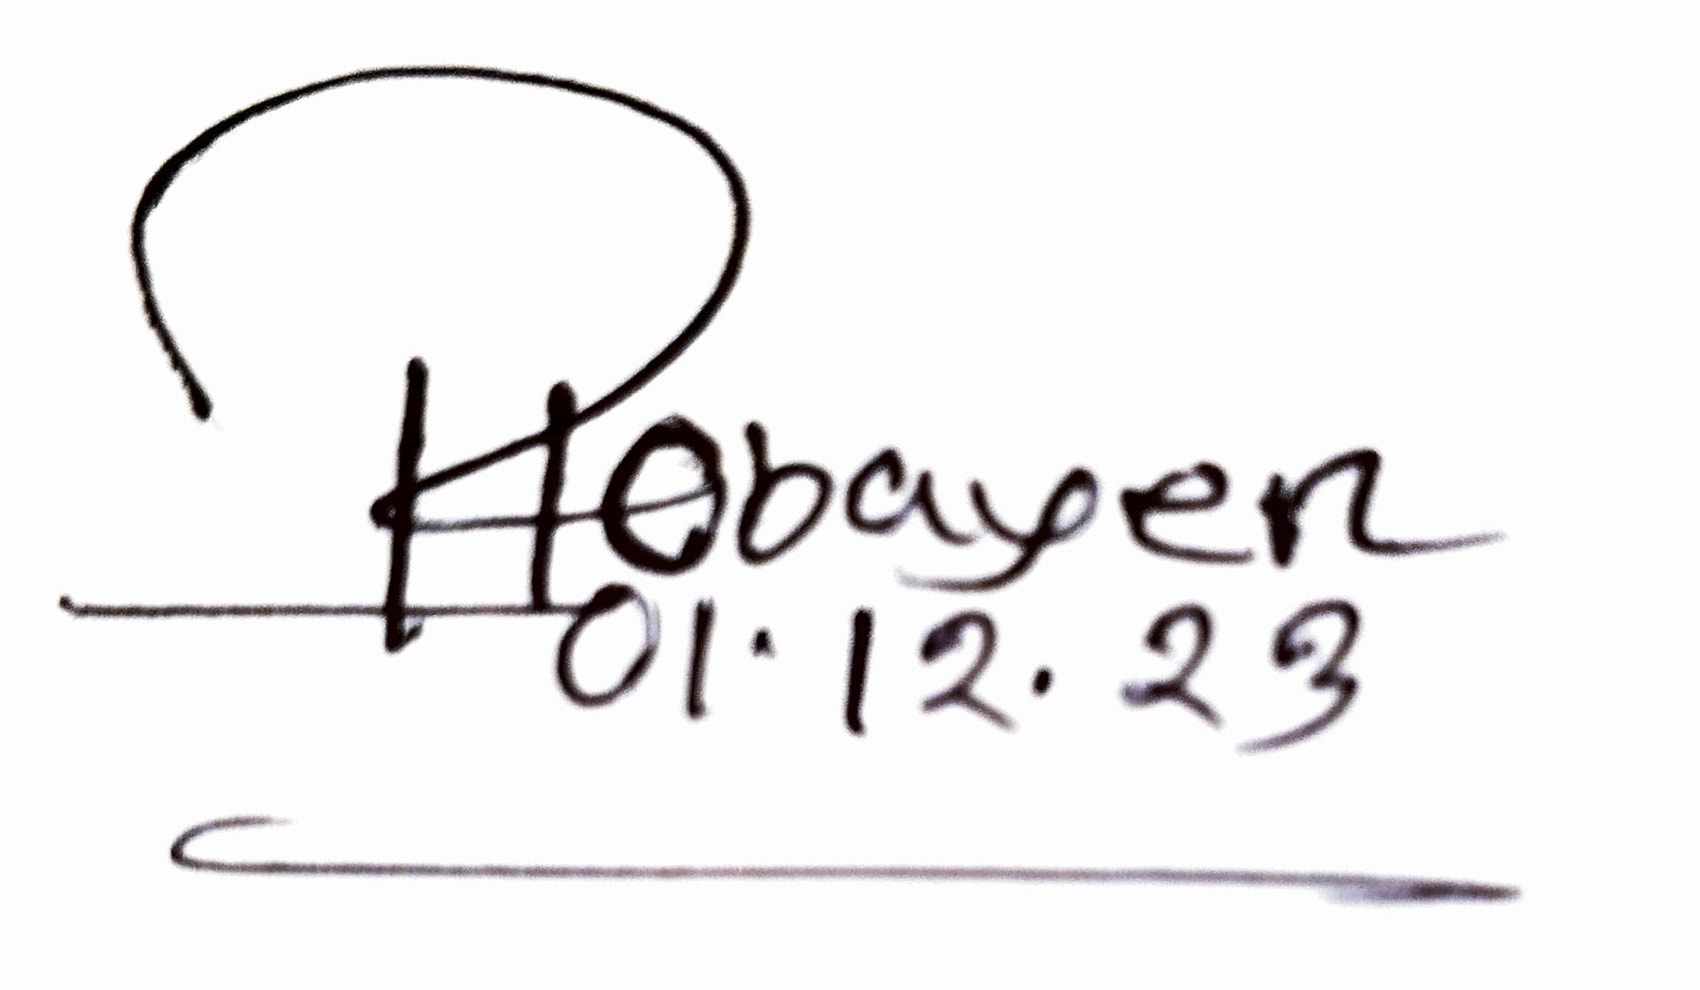 Hobayer
01.12.23